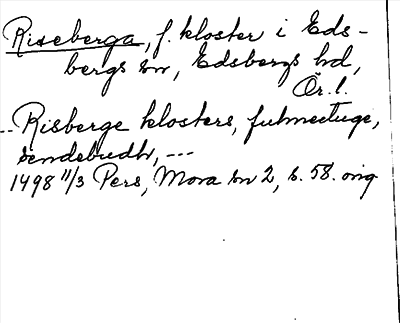 Riseberga, f. kloster i Eds-
bergs sn, Edsbergs hd,
Ör. l.
-- Risberge klosters, fulmectuge,
sendebudh, ---
1498 11/3 Pers, Mora sn 2, s. 58. orig